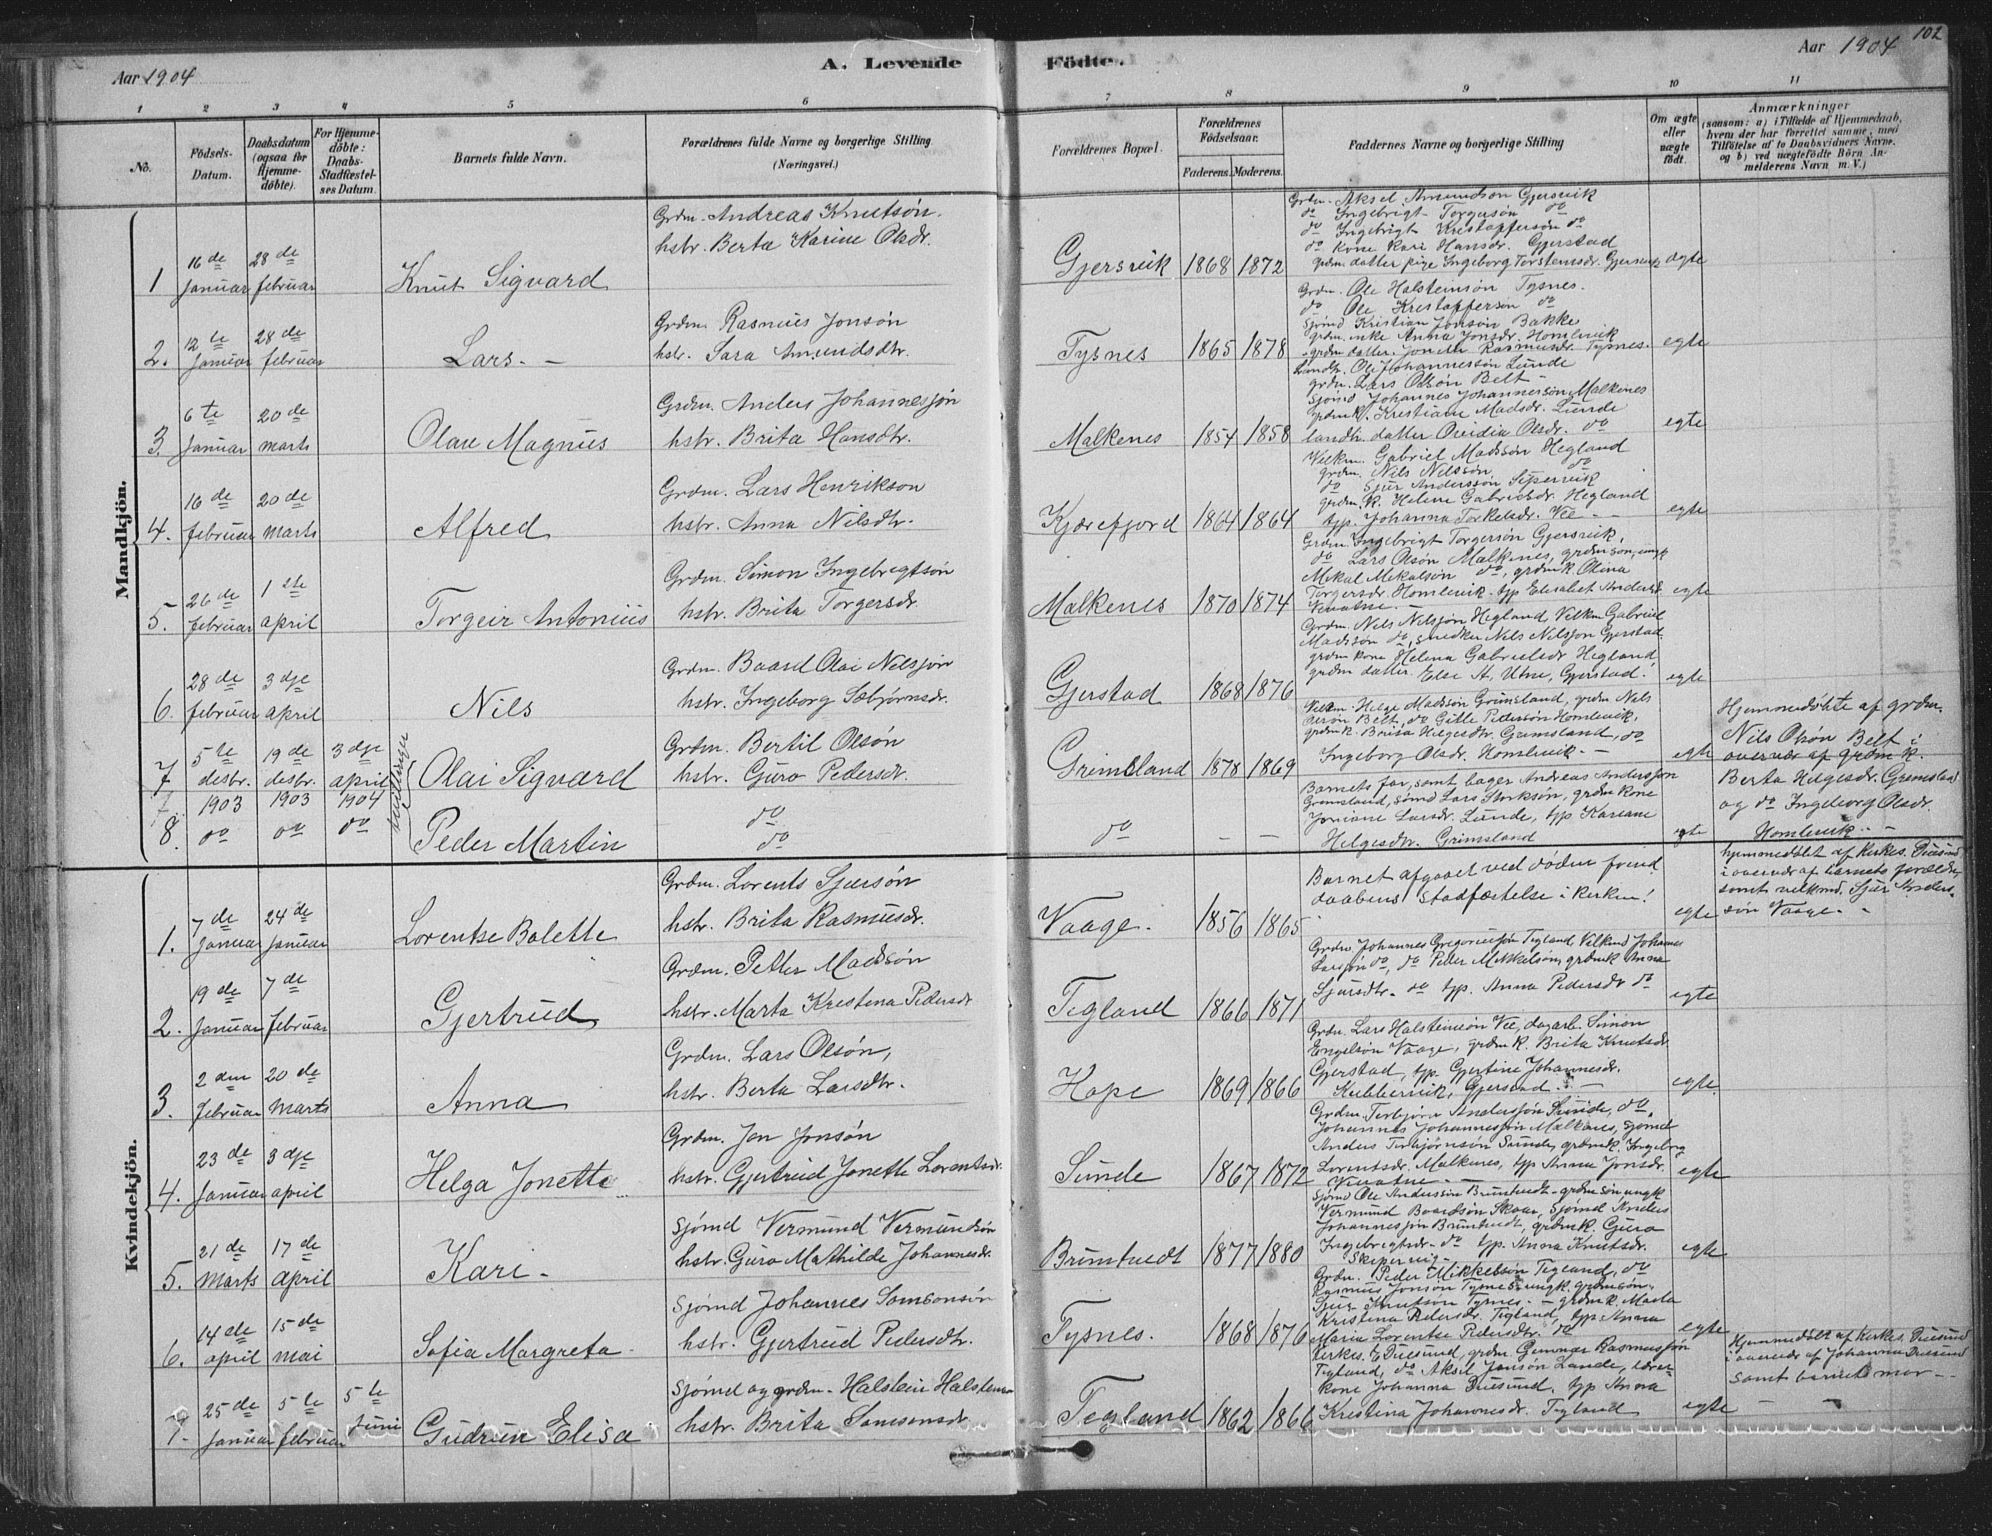 102
Aar 1904
A. Levende
Födte.
Aar 1904
1 2 3 4 5 6 7 8 9 10 11
No.
Födsels-Datum.
Daabsdatum (ogsaa for Hjemme-döbte).
For Hjemme-döbte: Daabs-Stadfæstel-ses Datum.
Barnets fulde Navn.
Forældrenes fulde Navne og borgerlige Stilling
(Næringsvei.)
Forældrenes Bopæl.
Forældrenes Födselsaar.
Faderens. Moderens.
Faddernes Navne og borgerlige Stilling
Om ægte eller uægte födt.
Anmærkninger
(saasom: a) i Tilfælde af Hjemmedaab, hvem der har forrettet samme, med Tilföielse af to Daabsvidners Navne, og b) ved uægtefödte Börn An-melderens Navn m. V.)
Mandkjön.
1 16de Januar 28de februar Knut Sigvard
Grdm. Andreas Knutsøn.
hstr. Berta Karine Olsdr.
Gjersvik 1868 1872
Grdm. Aksel Amundsøn Gjersvik
do Ingebrigt Torgersøn do
do Ingebrigt Kristoffersøn do
do kone Kari Hansdr. Gjerstad
grdm. datter pige Ingeborg Torsteinsdr. Gjersvik
ægte
2. 12te Januar 28de februar Lars. –
Grdm. Rasmus Jonsøn
hstr. Sara Amundsdtr.
Tysnes 1865 1878
Grdm. Ole Halsteinsøn Tysnes.
do Ole Kristoffersøn do
Sjømd Kristian Jonsøn Bakke
grdm. enke Anna Jonsdr. Homlevik
grdm datter Rasmusdr. Tysnes.
egte
3. 6te Januar 20de marts Olav Magnus
Grdm. Anders Johannesjøn
hstr. Brita Hansdtr.
Malkenes 1854 1858
Landtr. Ole Johannessøn Lunde
grdm. Lars Olsøn Belt –
Sjømd Johannes Johannessøn Malkenes
grdmk. Kristiane Madsdr. Lunde
landtr. datter Ovidia Olsdr. do
egte
4. 16de februar 20de marts Alfred
Grdm. Lars Henrikson
hstr. Anna Nilsdtr.
Kjærefjord 1864 1864
Velkm. Gabriel Madsøn Hegland
grdm. Nils Nilssøn do
do Sjur Anderssøn
grdm. k. Helene Gabrielsdr. Hegland
typ. Johanna Torkelsdr. Vee –
egte
5. 26de februar 1ste april Torgeir Antonius
Grdm. Simon Ingebrigtsøn
hstr. Brita Torgersdr
Malkenes 1870 1874
Grdm. Ingebrigt Torgersøn Gjersvik,
do Lars Olsøn Malkenes, grdm søn, ungk
Mikal Mikalsøn do, grdmk. Olina
Torgersdr. Homlevik, typ Elisabet Andersd.
egte
6. 28de februar 3dje april Nils
Grdm. Baard Olai Nilsjøn
hstr. Ingeborg Sæbjørnsdr.
Gjerstad 1868 1876
Grdm. Nils Nilsjøn Hegland Velkm Gabriel
Madsøn do, snedker Nils Nilsjon Gjerstad
grdm kone Helena Gabrielsdr Hegland
grdm datter Else A. Utne, Gjerstad.
egte
7 5te desbr. 1903 19de desbr. 1903 3dje april 1904 Olai Sigvard
tvillinger
Grdm. Bertil Olsøn
hstr. Guro Pedersdr.
Grimsland 1878 1869
Velkm. Helge Madsøn Grimsland, grdm Nils
Olsøn Belt, do Gitle Pedersøn Homlevik,
grdmk. Brita Helgesdr. Grimsland, do
Ingeborg Olsdr. Homlevik. –
egte
Hjemmedöbte af grdm.
Nils Olsøn Belt i
overvær af grdm k.
Berta Helgesdr. Grimsland
og do Ingeborg Olsdr.
Homlevik –
8. do do do Peder Martin
do
do
do – –
Barnets far, samt bager Andreas Andersson
Grimsland, sømd Lars Storksøn, grdm kone
Joniane Larsdr. Lunde, typ Kariane
Helgesdtr. Grimsland
egte
Kvindekjön.
1. 7de Januar 24de Januar Lorentse Bolette
Grdm. Lorents Sjursøn
hstr. Brita Rasmusdr.
Vaage. 1856 1865
Barnet afgaaet ved døden forind
daabens Stadfæstelse i kirken!
egte
hjemmedöbt af Kirkes. Duesund
i overvær af barnets forældre,
samt velkmd. Sjur Anders-
søn Vaage. –
2. 19de Januar 7de februar Gjertrud
Grdm. Petter Madsøn
hstr. Marta Kristena Pedersdr
Tegland 1866 1871
Grdm. Johannes Gregoriussøn Tegland Velkmd Johannes
Larsjøn do, do Peder Mikkelsøn, grdmk Anna
Sjursdtr. do typ. Anna Pedersdr do
egte
3. 2den februar 20de marts Anna
Grdm. Lars Olsøn,
hstr. Berta Larsdtr.
Hope 1869 1866
Grdm. Lars Halsteinsøn Vee, dagarb. Simon
Engelsøn Vaage, grdm k. Brita Knutsdr.
Gjerstad, typ. Gjertine Johannesdr.
Kubbervik, Gjerstad. –
egte.
4. 23de Januar 3dje april Helga Jonette
Grdm. Jon Jonsøn
hstr. Gjertrud Jonette Lorentsdr.
Sunde 1867 1872
Grdm. Torbjørn Andersjøn Sunde, do
Johannes Johannesjøn Malkenes, sjømd
Anders Torbjørnsøn Sunde, grdmk. Ingeborg
Lorentsdr. Malkenes, typ Anna Jonsdr.
egte
5. 21de Marts 17de April Kari –
Sjømd Vermund Vermundsøn
hstr. Guro Mathilde Johannesdr.
Bruntvedt 1877 1880
Sjømd Ole Anderssøn Bruntvedt. grdm søn ungk
Vermund Baardsøn Skaar, sjømd Anders
Johannesjøn Bruntvedt, grdmk. Guro
Ingebrigtsdr. do typ. Anna Knutsdr.
egte
6. 14de april 15de mai Sofia Margreta
Sjømd Johannes Samsonsøn
hstr. Gjertrud Pedersdtr.
Tysnes. 1868 1876
Grdm. Peder Mikkelsøn Tegland, do
Rasmus Jonsøn Tysnes, ungk. grdmsøn.
Sjur Knutsøn Tysnes. – grdmk. Marta
Kristina Pedersdr. Tegland, typ. Anna
Maria Lorentse Pedersdtr. do
egte
7. 25de Januar 5te februar 5te Juni Gudrun Elisa
Sjømd og grdm. Halstein Halsteins.
hstr. Brita Samsonsdr.
Tegland 1862 1866
Kirkes. E Duesund, grdm Gunnar Rasmussjøn
Tegland, do Aksel Jonsøn Lande, lærer
kone Johanna Duesund, typ Anna
Kristina Johannesdr. Tegland
egte
Hjemmedöbt af Kirkes. Duesund
i overvær af Johanna Duesund
samt barnets mor –